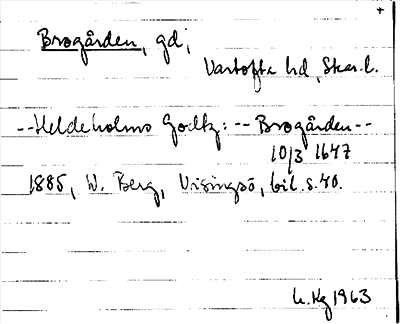 +
Brogården, gd;
Vartofta hd, Skar. l.
--Heldeholms Godtz: -- Brogården--
10/3 1647
1885, W. Berg, Visingsö, bil. s. 40.
1963